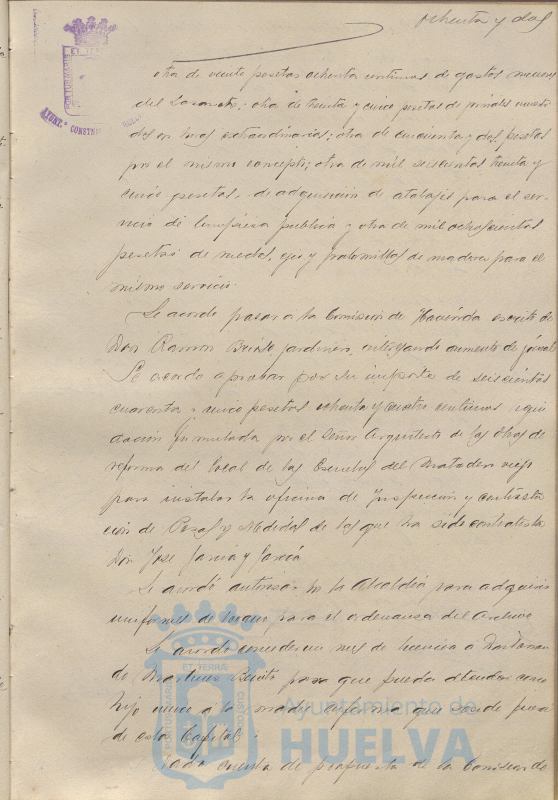 ochenta y dos
otra de veinte pesetas ochenta centimos de gastos menores
del Lazareto; otra de treinta y cinco pesetas de jornales
en horas extraordinarias; otra de cincuenta y dos pesetas
por el mismo concepto; otra de mil seiscientas treinta y
cinco pesetas, de adquisicion de atalajes para el ser-
vicio de limpieza publica y otra de mil ochocientas
pesetas de ruedas, ejes y palomillas de madera para el
mismo servicio.
Se acordo pasar a la Comision de Hacienda escrito de
Don Ramon jardinero, aumento de jornal
Se acordo aprobar por su importe de seiscientas
cuarenta y cinco pesetas ochenta y cuatro centimos liqui
dacion formulada por el Señor Arquitecto de las obras de
reforma del local de las Escuelas del Matadero viejo
para instalar la oficina de Inspeccion y contrasta
cion de Pesas y Medidas de las que ha sido contratista
Don Jose Garcia y Garcia
Se acordó autorizar a la Alcaldia para adquirir
uniformes de para el ordenanza del Archivo
Se acordo conceder un mes de licencia a Don
do Martinez para que pueda atender como
hijo unico a la madre enferma que reside fuera
de esta Capital.
Dada cuenta de propuesta de la Comision de
ET TERRAE
PORTUS MARIS
AYUNT.º CONSTIT
ET TERRÆ
PORTUS MARIS
CUSTODIA
Ayuntamiento de
HUELVA